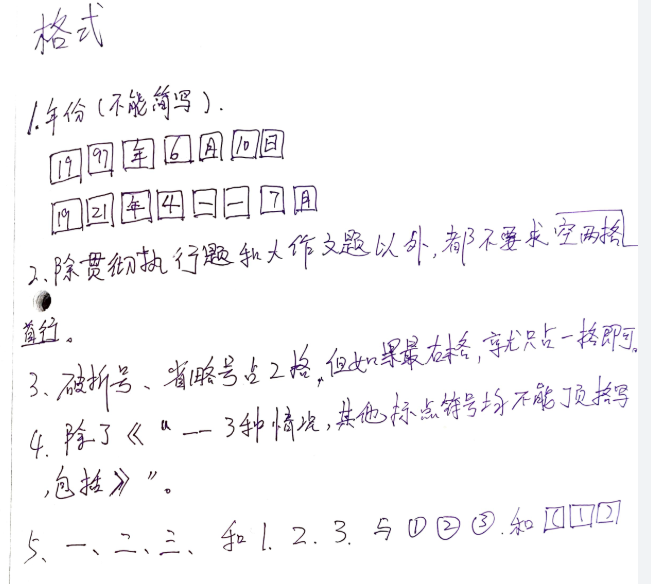 格式
1.年份(不能简写).
19 97 年 6 月 10 日
19 21 年 4 — — 7 月
2、除贯彻执行题和大作文题以外,都不要求空两格
首行。
3、破折号、省略号占2格,但如果最右格,就只占一格即可。
4.除了《 “ — 3种情况,其他标点符号均不能顶格写
,包括》”。
5、一、二、三、和1.2.3.与①②③.和[(][1][)]